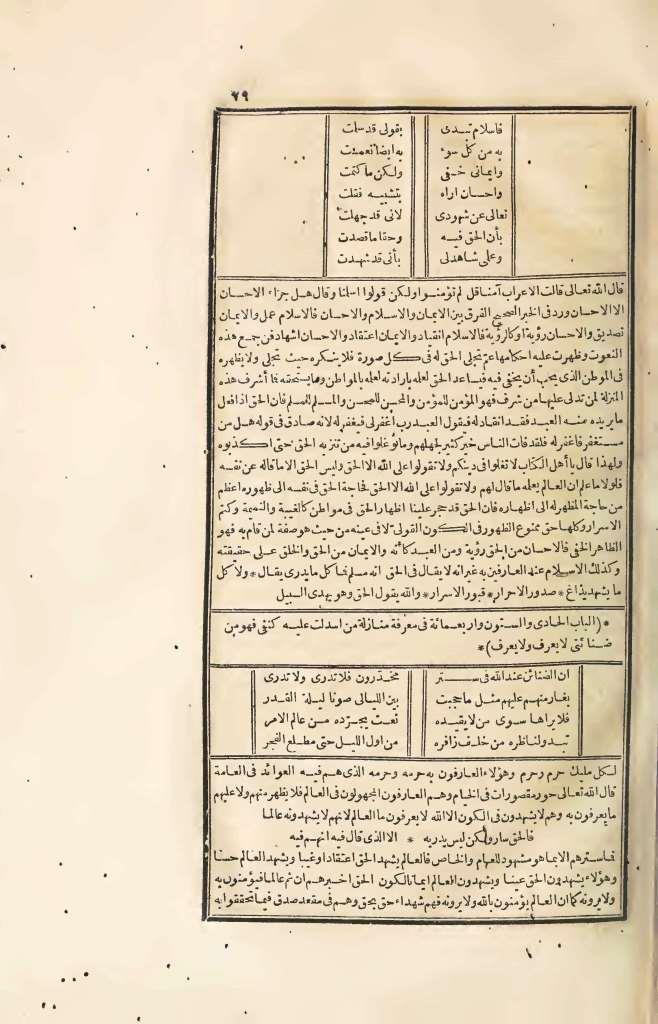 ٦٩
فاسلام تبدى يقولى قد سلمت
به من كل سوء به ايضا نعمت
وايمانى خفى ولكن ما كتمت
واحسان اراه بتشبيه فقلت
تعالى عن شهودى لانى قد جهلت
بأن الحق فيه وحقا ما قصدت
وعلى شاهد لى بأنى قد شهدت
قال الله تعالى قالت الاعراب آمنا قل لم تؤمنوا ولكن قولوا اسلمنا وقال هل جزاء الاحسان
الا الاحسان ورد فى الخبر الصحيح الفرق بين الايمان والاسلام والاحسان فالاسلام عمل والايمان
تصديق والاحسان رؤية أو كالرؤية فالاسلام انقياد والايمان اعتقاد والاحسان اشهاد فن جمع هذه
النعوت وظهرت عليه احكامها عم تجلى الحق له فى كل صورة فلا ينكره حيث تجلى ولا يظهره
فى الموطن الذى يحب أن يخفى فيه فيساعد الحق لعلمه بارادته لعلمه بالمواطن وما يستحقه فما أشرف هذه
المنزلة لمن تدلى عليها من شرف فهو المؤمن للمؤمن والمحسن للمحسن والمسلم للمسلم فان الحق اذا فعل
ما يريده منه العبد فقد انقاد له فيقول العبد رب أغفر لى فيغفر له لانه صادق فى قوله هل من
مستغفر فاغفر له فلقد فات الناس خير كثير لجهلهم وما تو غلوا فيه من تنزيه الحق حتى اكذبوه
ولهذا قال يا أهل الكتاب لا تغلوا فى دينكم ولا تقولوا على الله الا الحق وليس الحق الا ما قاله عن نفسه
فلولا ما علم ان العالم يعلمه ما قال لهم ولا تقولوا على الله الا الحق فحاجة الحق فى نفسه الى ظهوره اعظم
من حاجة المظهر له الى اظهاره فان الحق قد حجر علينا اظهار الحق فى مواطن كالغيبة والنميمة وكتم
الاسرار وكلها حق ممنوع الظهور فى الكون القولى لا فى عينه من حيث هو صفة لمن قام به فهو
الظاهر الخفى فالاحسان من الحق رؤية ومن العبد كأنه والايمان من الحق والخلق على حقيقته
وكذلك الاسلام عند العارفين به غير انه لا يقال فى الحق انه مسلم فما كل ما يدرى يقال * ولا كل
ما يشهد يذاع * صدور الاحرار * قبور الاسرار * والله يقول الحق وهو يهدى السبيل
* (الباب الحادى والستون واربعمائة فى معرفة منازلة من اسدلت عليه كنفى فهو من
ضنائنى لا يعرف ولا يعرف) *
ان الضنائن عند الله فى ستر مخدرون فلا تدرى ولا تدرى
يغار منهم عليهم مثل ما حجبت بين الليالى صونا ليلة القدر
فلا يراها سوى من لا يقيده نعت بمجرّده من عالم الامر
تبدو لناظره من خلف زافره من اول الليل حتى مطلع الفجر
لكل مليك حرم وحرم وهؤلاء العارفون به حرمه وحرمه الذى هم فيه العوائد فى العامة
قال الله تعالى حور مقصورات فى الخيام وهم العارفون المجهولون فى العالم فلا يظهر منهم ولا عليهم
ما يعرفون به وهم لا يشهدون فى الكون الا الله لا يعرفون ما العالم لانهم لا يشهدونه عالما
فالحق سار ولكن ليس يدريه * الا الذى قال فيه انهم فيه
فما سترهم الا بما هو مشهود للعوام والخاص فالعالم يشهد الحق اعتقادا وغيبا ويشهد العالم حسا
وهؤلاء يشهدون الحق عينا ويشهدون العالم ايمانا لكون الحق اخبرهم ان ثم عالما فيؤمنون به
ولا يرونه كما ان العالم يؤمنون بالله ولا يرونه فهم شهداء حق بحق وهم فى مقعد صدق فيما تحققوا به